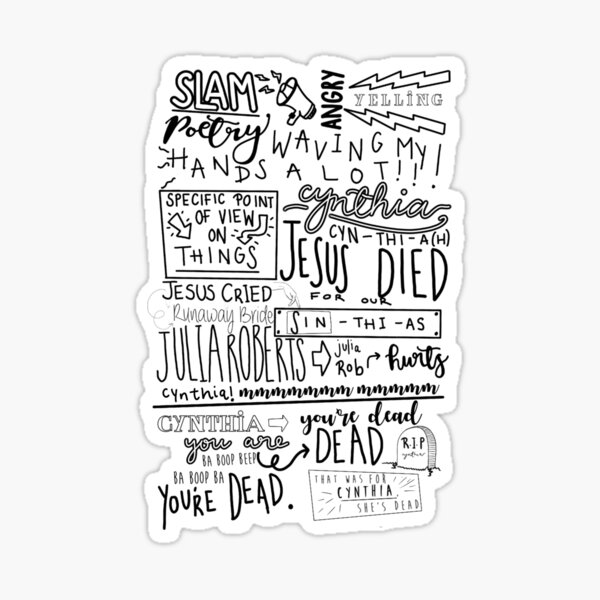 SLAM
Poetry
ANGRY
YELLING
WAVING MY
HANDS A LOT!!!
SPECIFIC POINT
OF VIEW
ON
THINGS
cynthia
CYN-THI-A(H)
JESUS DIED
FOR OUR
SIN-THI-AS
JESUS CRIED
Runaway Bride
JULIA ROBERTS
julia
Rob
hurts
cynthia! mmmmmmmm mmmmmm
CYNTHIA
you're dead
you are
DEAD
R.I.P
cynthia
BA BOOP BEEP
BA BOOP BA
YOU'RE DEAD.
THAT WAS FOR
CYNTHIA
SHE'S DEAD